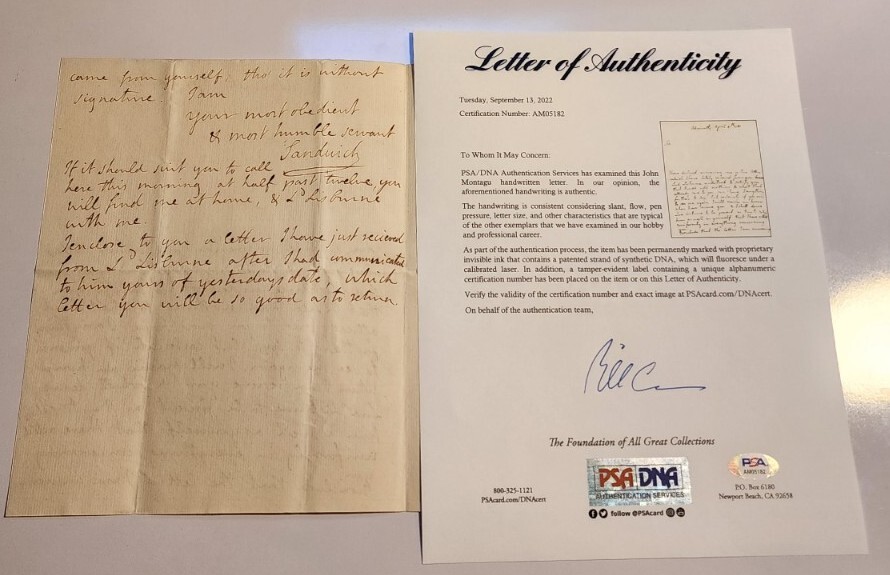 came from yourself, tho' it is without
signature. I am
your most obedient
& most humble servant
Sandwich
If it should suit you to call
here this morning at half past twelve, you
will find me at home, & Ld Lisburne
with me.
I enclose to you a letter I have just recieved
from Ld Lisburne after I had communicated
to him yours of yesterdays date, which
letter you will be so good as to return
Letter of Authenticity
Tuesday, September 13, 2022
Certification Number: AM05182
To Whom It May Concern:
PSA/DNA Authentication Services has examined this John
Montagu handwritten letter. In our opinion, the
aforementioned handwriting is authentic.
The handwriting is consistent considering slant, flow, pen
pressure, letter size, and other characteristics that are typical
of the other exemplars that we have examined in our hobby
and professional career.
As part of the authentication process, the item has been permanently marked with proprietary
invisible ink that contains a patented strand of synthetic DNA, which will fluoresce under a
calibrated laser. In addition, a tamper-evident label containing a unique alphanumeric
certification number has been placed on the item or on this Letter of Authenticity.
Verify the validity of the certification number and exact image at PSAcard.com/DNAcert.
On behalf of the authentication team,
The Foundation of All Great Collections
800-325-1121
PSAcard.com/DNAcert
PSA DNA
AUTHENTICATION SERVICES
follow @PSAcard
PSA
AM05182
P.O. Box 6180
Newport Beach, CA 92658